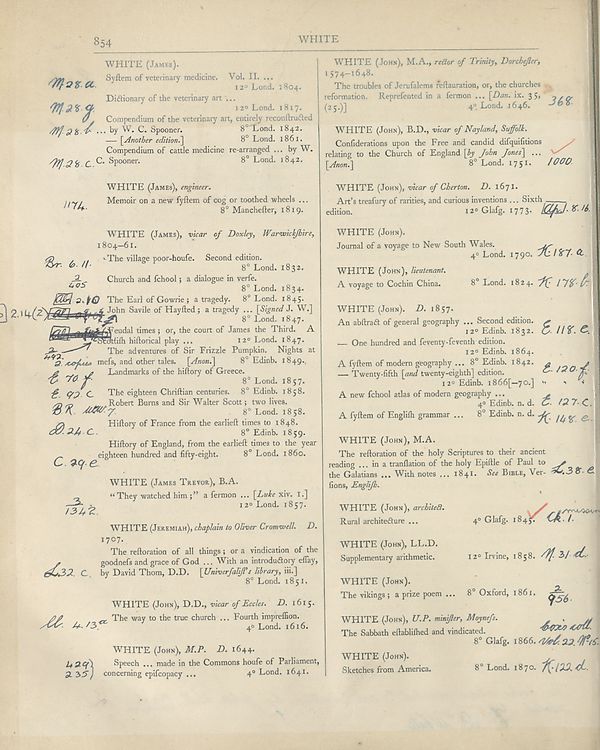 854
WHITE
WHITE (James).
Syſtem of veterinary medicine. Vol. II. ...
12° Lond. 1804.
Dictionary of the veterinary art ...
12° Lond. 1817.
Compendium of the veterinary art, entirely reconſtructed
... by W. C. Spooner. 8° Lond. 1842.
— [Another edition.] 8° Lond. 1861.
Compendium of cattle medicine re-arranged ... by W.
C. Spooner. 8° Lond. 1842.
WHITE (James), engineer.
Memoir on a new ſyſtem of cog or toothed wheels ...
8° Mancheſter, 1819.
WHITE (James), vicar of Doxley, Warwickſhire,
1804–61.
The village poor-houſe. Second edition.
8° Lond. 1832.
Church and ſchool; a dialogue in verſe.
8° Lond. 1834.
The Earl of Gowrie; a tragedy. 8° Lond. 1845.
John Savile of Hayſted; a tragedy ... [Signed J. W.]
8° Lond. 1847.
Feodal times; or, the court of James the Third. A
Scottiſh hiſtorical play ... 12° Lond. 1847.
The adventures of Sir Frizzle Pumpkin. Nights at
meſs, and other tales. [Anon.] 8° Edinb. 1849.
Landmarks of the hiſtory of Greece.
8° Lond. 1857.
The eighteen Chriſtian centuries. 8° Edinb. 1858.
Robert Burns and Sir Walter Scott; two lives.
8° Lond. 1858.
Hiſtory of France from the earlieſt times to 1848.
8° Edinb. 1859.
Hiſtory of England, from the earlieſt times to the year
eighteen hundred and fifty-eight. 8° Lond. 1860.
WHITE (James Trevor), B.A.
“They watched him;” a ſermon ... [Luke xiv. 1.]
12° Lond. 1857.
WHITE (Jeremiah), chaplain to Oliver Cromwell. D.
1707.
The reſtoration of all things; or a vindication of the
goodneſs and grace of God ... With an introductory eſſay,
by David Thom, D.D. [Univerſaliſt's library, iii.]
8° Lond. 1851.
WHITE (John), D.D., vicar of Eccles. D. 1615.
The way to the true church ... Fourth impreſſion.
4° Lond. 1616.
WHITE (John), M.P. D. 1644.
Speech ... made in the Commons houſe of Parliament,
concerning epiſcopacy ... 4° Lond. 1641.
WHITE (John), M.A., rector of Trinity, Dorcheſter,
1574–1648.
The troubles of Jeruſalems reſtauration, or, the churches
reformation. Repreſented in a ſermon ... [Dan. ix. 35,
(25.)] 4° Lond. 1646.
368.
WHITE (John), B.D., vicar of Nayland, Suffolk.
Conſiderations upon the Free and candid diſquiſitions
relating to the Church of England [by John Jones] ...
[Anon.] 8° Lond. 1751.
1000
WHITE (John), vicar of Cherton. D. 1671.
Art's treaſury of rarities, and curious inventions ... Sixth
edition. 12° Glaſg. 1773.
WHITE (John).
Journal of a voyage to New South Wales.
4° Lond. 1790.
WHITE (John), lieutenant.
A voyage to Cochin China. 8° Lond. 1824.
WHITE (John). D. 1857.
An abſtract of general geography ... Second edition.
12° Edinb. 1832.
— One hundred and ſeventy-ſeventh edition.
12° Edinb. 1864.
A ſyſtem of modern geography ... 8° Edinb. 1842.
— Twenty-fifth [and twenty-eighth] edition.
12° Edinb. 1866[–70.]
A new ſchool atlas of modern geography ...
4° Edinb. n. d.
A ſyſtem of Engliſh grammar ... 8° Edinb. n. d.
WHITE (John), M.A.
The reſtoration of the holy Scriptures to their ancient
reading ... in a tranſlation of the holy Epiſtle of Paul to
the Galatians ... With notes ... 1841. See Bible, Ver-
ſions, Engliſh.
WHITE (John), architect.
Rural architecture ... 4° Glaſg. 1845.
WHITE (John), LL.D.
Supplementary arithmetic. 12° Irvine, 1858.
WHITE (John).
The vikings; a prize poem ... 8° Oxford, 1861.
WHITE (John), U.P. miniſter, Moyneſs.
The Sabbath eſtabliſhed and vindicated.
8° Glaſg. 1866.
WHITE (John).
Sketches from America. 8° Lond. 1870.